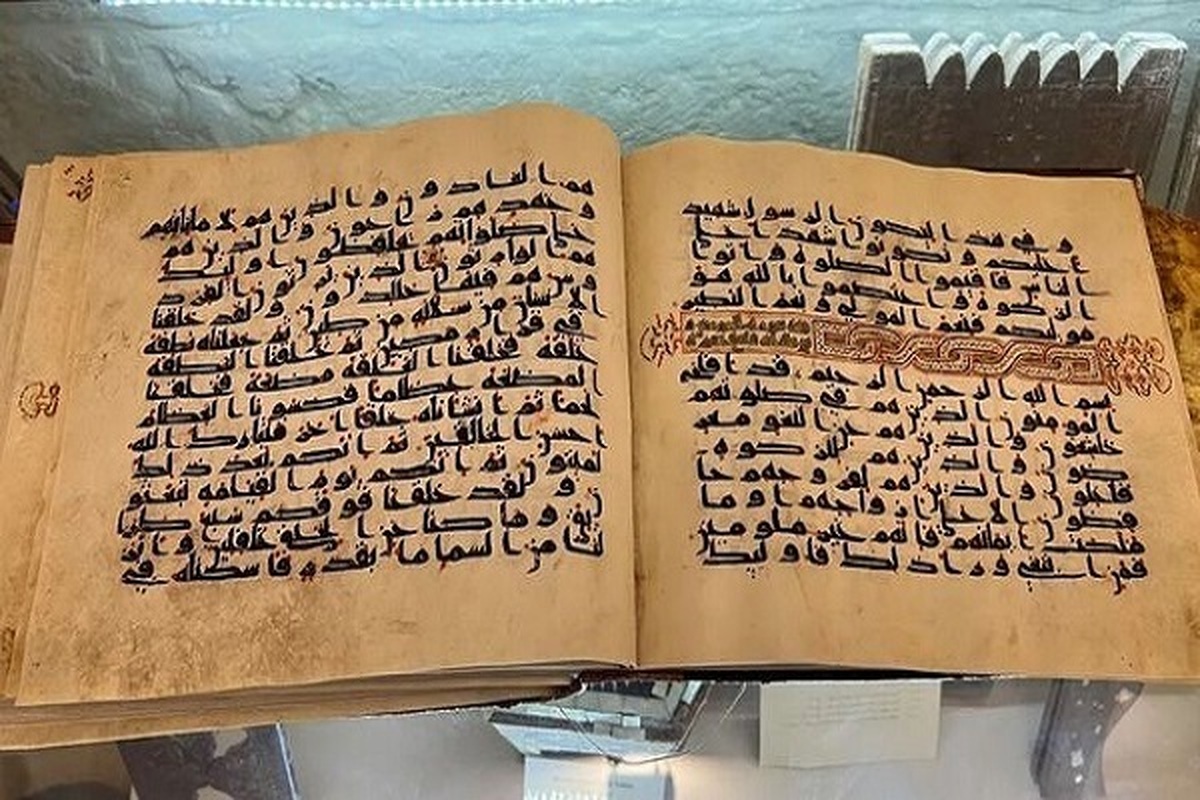 و في هذا ليكون الرسول شهيد
ا عليكم و تكونوا شهدا على
الناس فاقيموا الصلوه و اتوا
الزكوه و اعتصموا بالله هو
موليكم فنعم المولى و نعم النصير
بسم الله الرحمن الرحيم قد افلح
المومنون الذين هم في صلوتهم
خشعون و الذين هم عن اللغو معر
ضون و الذين هم للزكوه
فاعلون و الذين هم لفروجهم حا
فظون الا على ازواجهم او ما
ملكت ايمانهم فانهم غير ملومين
فمن ابتغى ورا ذلك فاوليك
هم العادون و الذين هم لاماناتهم
و عهدهم راعون و الذين هم
على صلواتهم يحافظون اوليك
هم الوارثون الذين يرثون الفرد
وس هم فيها خالدون و لقد خلقنا
الانسان من سلاله من طين ثم جعلناه نطفه
في قرار مكين ثم خلقنا النطفه
علقه فخلقنا العلقه مضغه فخلقنا
المضغه عظاما فكسونا العظام
لحما ثم انشاناه خلقا اخر فتبارك الله
احسن الخالقين ثم انكم بعد ذلك
لميتون ثم انكم يوم القيامه تبعثو
ن و لقد خلقنا فوقكم سبع طرا
يق و ما كنا عن الخلق غافلين و انز
لنا من السما ما بقدر فاسكناه في